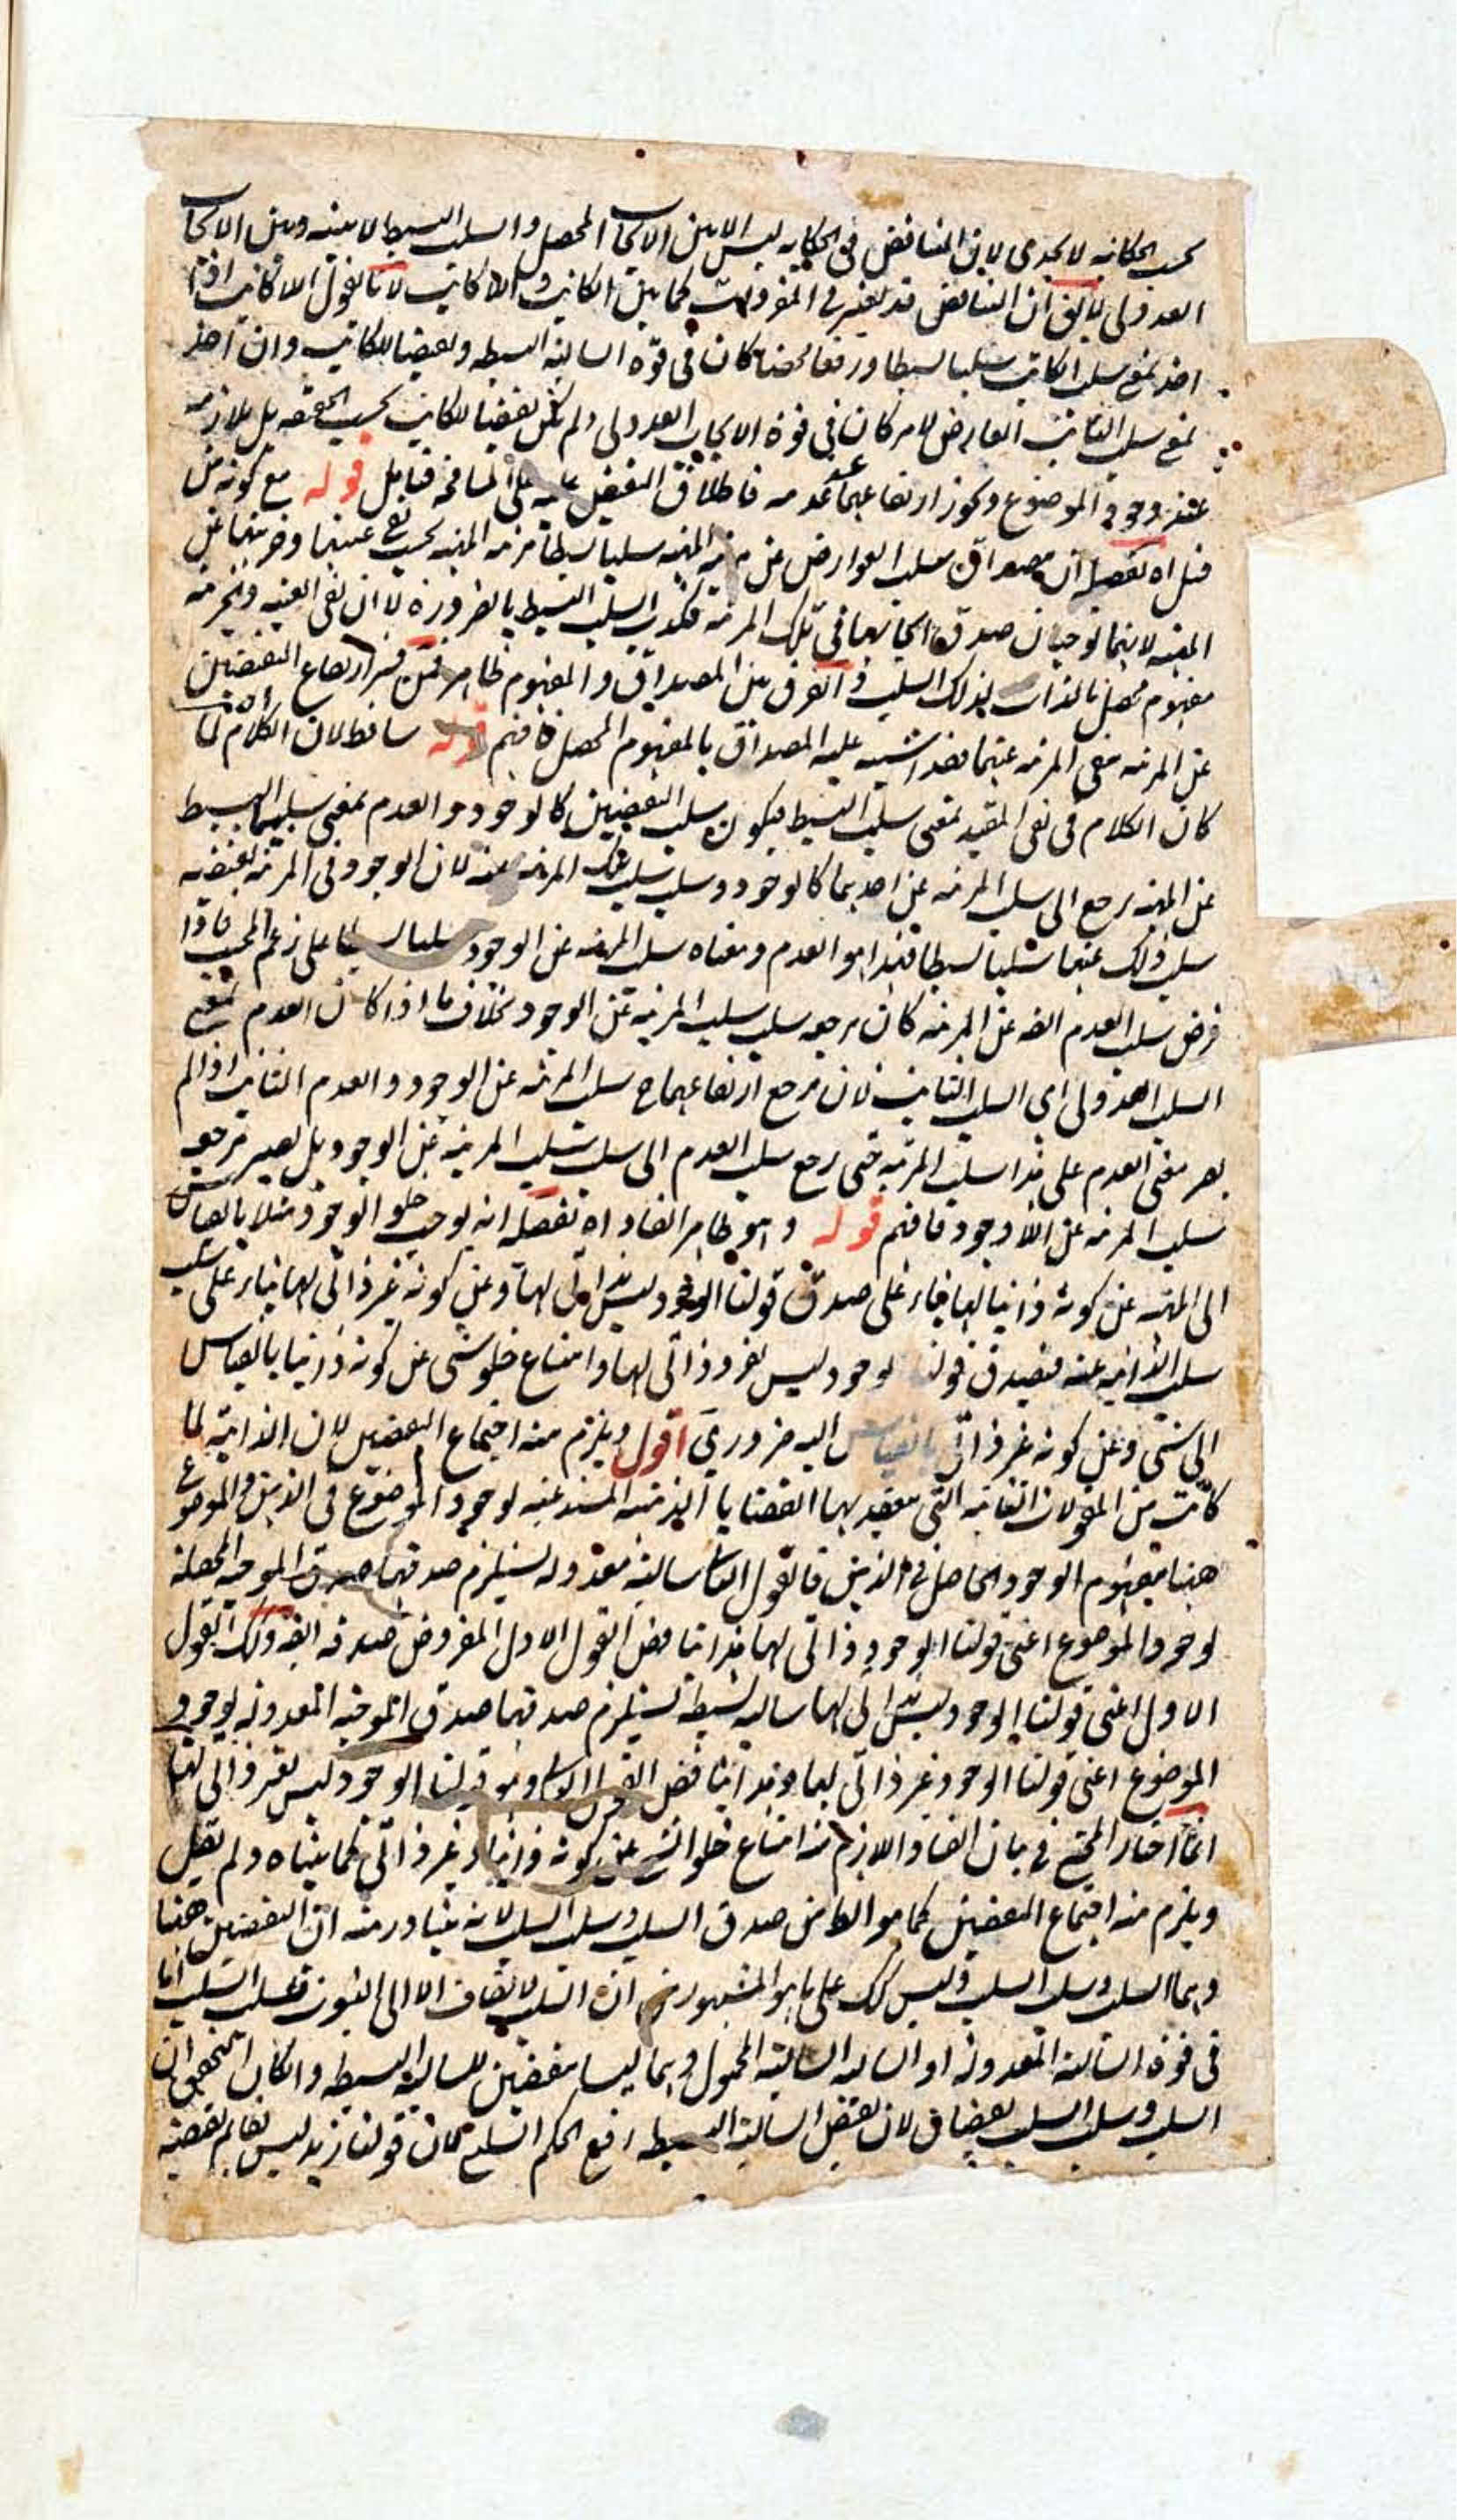 بحسب الحكاية لا يجدى لان التناقض فى الحكاية ليس الا بين الايجاب المحصل والسلب البسيط لا بينه وبين الايجاب
العدولى لا يق ان التناقض قد يعتبر فى المفردات كما بين الكاتب واللا كاتب لانا نقول اللا كاتب اذا
اخذ بمعنى سلب الكاتب سلبا بسيطا ورفعا محضا كان فى قوة السالبة البسيطة ونقيضا للكاتب وان اخذ
بمعنى سلب الثابت العارض لامر كان فى قوة الايجاب العدولى ولم يكن نقيضا للكاتب بحسب الحقيقة بل ملازمه
عند وجود الموضوع ويجوز ارتفاعهما عند عدمه فاطلاق النقيض عليه على المسامحة فتامل قوله مع كونه من
قبيل اه تفصيله ان مصداق سلب العوارض عن مرتبة المهية سلبا بسيطا مرتبة المهية بحسب نفى عينيتها وجزئيتها عن
المهية لانهما يوجبان صدق ايجابهما فى تلك المرتبة فكذب السلب البسيط بالضرورة لا ان نفى العينية والجزئية
مفهوم محصل بالذات لذلك السلب والفرق بين المصداق والمفهوم ظاهر فمن فسر ارتفاع النقيضين
عن المرتبة بنفى المرتبة عنهما فقد اشتبه عليه المصداق بالمفهوم المحصل فافهم قوله ساقط لان الكلام اه لما
كان الكلام فى نفى المقيد بمعنى سلب البسيط فيكون سلب النقيضين كالوجود والعدم بمعنى سلبهما البسيط
عن المهية يرجع الى سلب المرتبة عن احدهما كالوجود وسلب سلب تلك المرتبة عنه لان الوجود فى المرتبة نقيضه
سلب ذلك عنهما سلبا بسيطا فهذا هو العدم ومعناه سلب المرتبة عن الوجود سلبا بسيطا على زعم المجيب فاذا
فرض سلب العدم ايضه عن المرتبة كان مرجعه سلب سلب المرتبة عن الوجود بخلاف ما اذا كان العدم بمعنى
السلب العدولى اى السلب الثابت لان مرجع ارتفاعهما ح سلب المرتبة عن الوجود والعدم الثابت اذ لم
يصر معنى العدم على هذا سلب المرتبة حتى رجع سلب العدم الى سلب سلب المرتبة عن الوجود بل يصير مرجعه
سلب المرتبة عن اللا وجود فافهم قوله وهو ظاهر الفساد اه تفصيله انه يوجب خلو الوجود مثلا بالقياس
الى المهية عن كونه ذاتيا لها بناء على صدق قولنا الوجود ليس بذاتى لها وعن كونه غير ذاتى لها بناء على سلب
سلب الذاتية عنه فيصدق قولنا الوجود ليس بغير ذاتى لها وامتناع خلو شىء عن كونه ذاتيا بالقياس
الى شىء وعن كونه غير ذاتى بالقياس اليه ضرورى اقول ويلزم منه اجتماع النقيضين لان الذاتية لما
كانت من المعقولات الثانية التى تنعقد بها القضايا الذهنية المستدعية لوجود الموضوع فى الذهن والموضوع
ههنا مفهوم الوجود الحاصل فى الذهن فالقول الثانى سالبة معدولة يستلزم صدقها صدق الموجبة المحصلة
لوجود الموضوع اعنى قولنا الوجود ذاتى لها هذا يناقض القول الاول المفروض صدقه ايضه وكذلك القول
الاول اعنى قولنا الوجود ليس بذاتى لها سالبة بسيطة يستلزم صدقها صدق الموجبة المعدولة لوجود
الموضوع اعنى قولنا الوجود غير ذاتى لها وهذا يناقض القول الثانى وهو قولنا الوجود ليس بغير ذاتى لها
انما اختار المحشى فى بيان الفساد اللازم منه امتناع خلو الشىء عن كونه ذاتيا وغير ذاتى كما بيناه ولم يقل
ويلزم منه اجتماع النقيضين كما هو الظاهر من صدق السلب وسلب السلب لانه يتبادر منه ان النقيضين ههنا
وهما السلب وسلب السلب وليس كك على ما هو المشهور من ان السلب لا يضاف الا الى الثبوت فسلب السلب اما
فى قوة السالبة المعدولة او السالبة السالبة المحمول وهما ليسا نقيضين للسالبة البسيطة وان كان التحقيق ان
السلب وسلب السلب نقيضان لان نقيض السالبة البسيطة رفع الحكم السلبى كان قولنا زيد ليس بقائم نقيضه